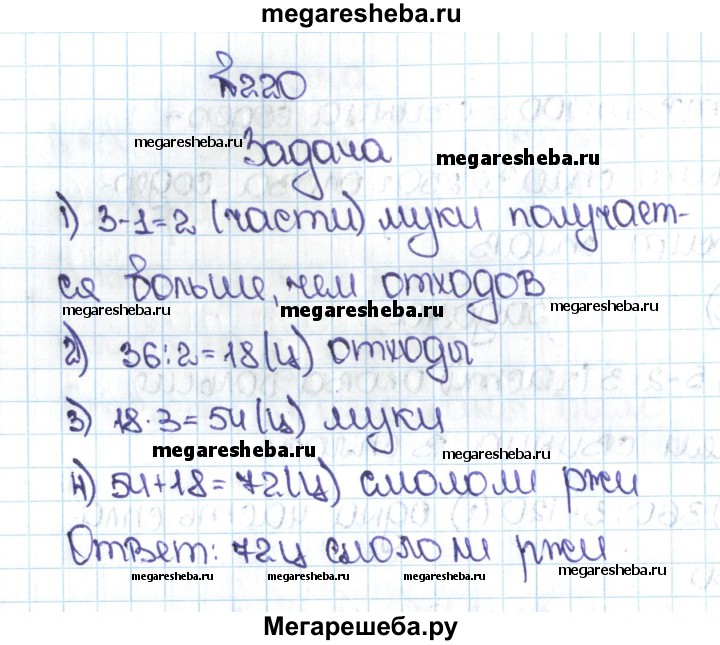 megaresheba.ru
№220
megaresheba.ru Задача megaresheba.ru
1) 3-1=2 (части) муки получает-
ся больше, чем отходов
megaresheba.ru megaresheba.ru megaresheba.ru
2) 36:2=18(ц) отходы
3) 18·3=54(ц) муки
megaresheba.ru megaresheba.ru
4) 54+18=72(ц) смололи ржи
Ответ: 72ц смололи ржи.
megaresheba.ru megaresheba.ru megaresheba.ru megaresheba.ru
Мегарешеба.ру